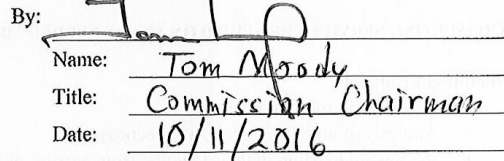 By:
Name: Tom Moody
Title: Commission Chairman
Date: 10/11/2016